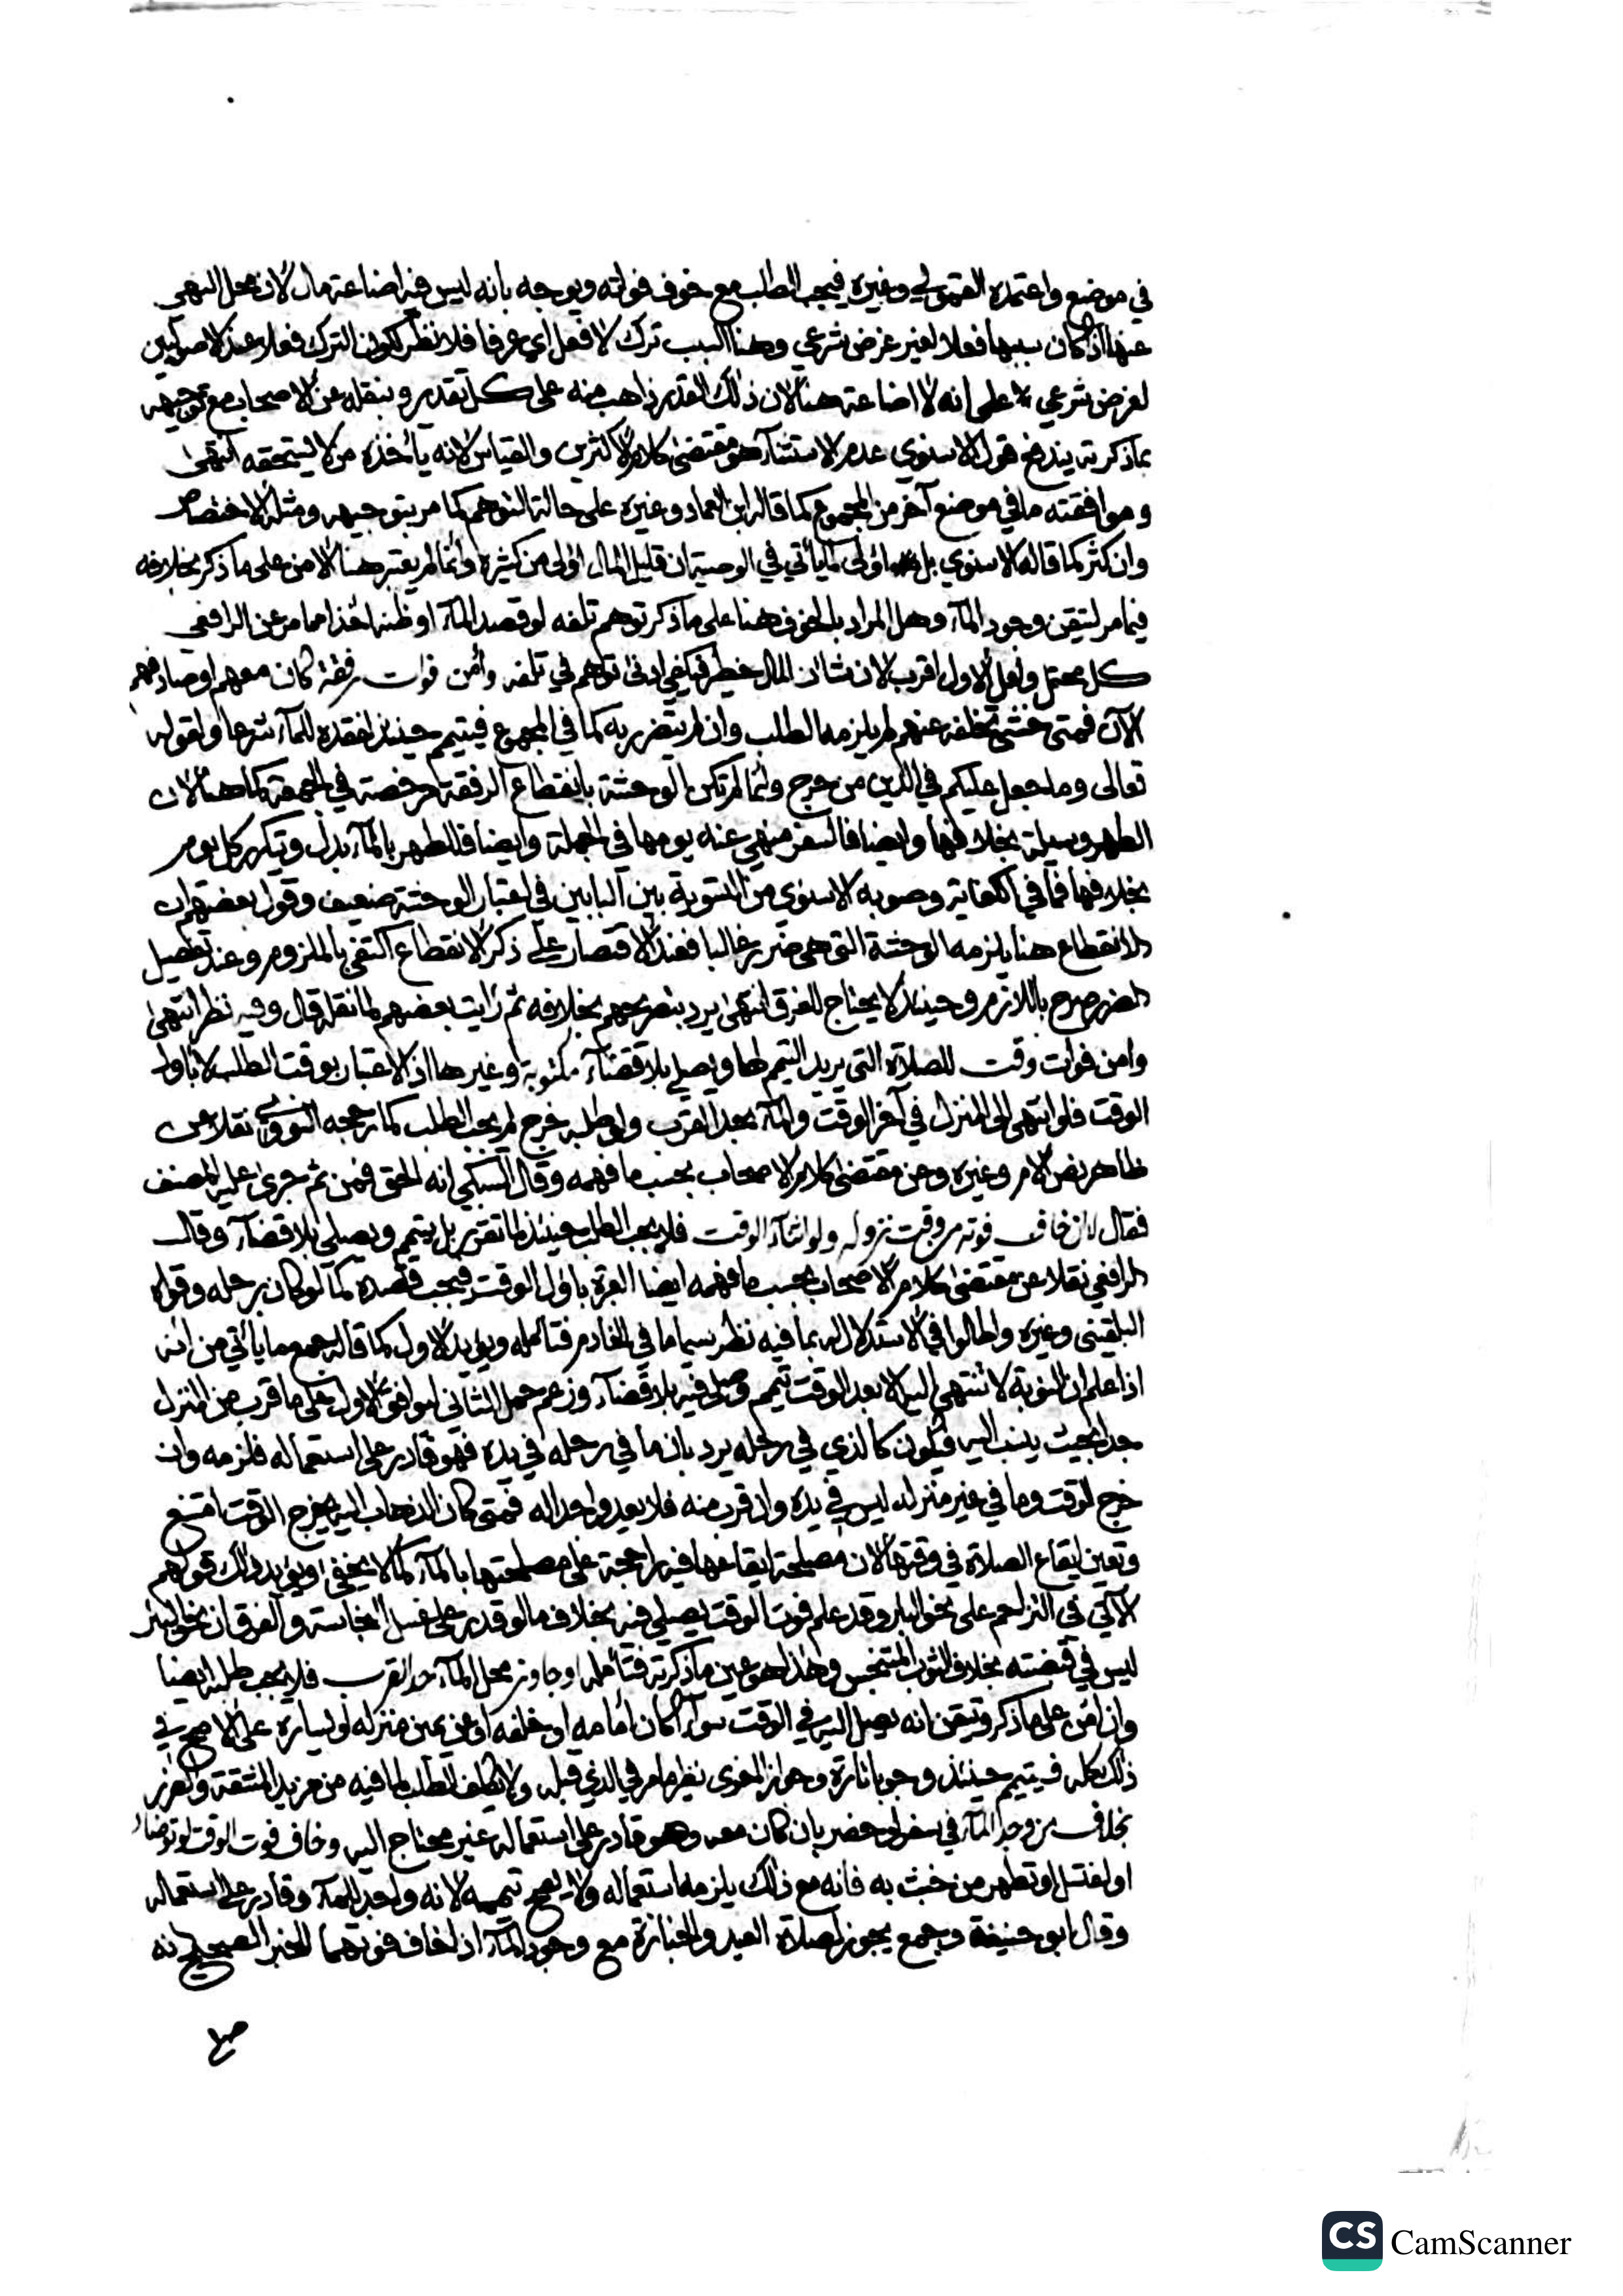 في موضع واعتمده القمولي وغيره فيجب الطلب مع خوف فواته ويوجه بانه ليس فيه اضاعة مال لان محل النهي
عنها اذا كان سببها فعلا لغير غرض شرعي وهنا السبب ترك لا فعل اي عرفا فلا نظر لكون الترك فعلا عند الاصوليين
لغرض شرعي على انه لا اضاعة هنا لان ذلك القدر ذاهب منه على كل تقدير وبنقله عن الاصحاب مع توجيهه
بما ذكرته يندفع قول الاسنوي عدم الاستثناء هو مقتضى كلام الاكثرين والقياس لانه يأخذه من لا يستحقه انتهى
وموافقته ما في موضع آخر من المجموع كما قاله ابن العماد وغيره على حالة التوهم كما مر بتوجيهه ومثله الاختصاص
وان كثر كما قاله الاسنوي بل اولى لما يأتي في الوصية ان قليل المال اولى من كثيره وانما لم يعتبر هنا الامن على ما ذكر بخلافه
فيما مر لتيقن وجود المآء وهل المراد بالخوف هنا على ما ذكر توهم تلفه لو قصد المآء او ظنه اخذا مما مر عن الرافعي
كل محتمل ولعل الاول اقرب لان شان المال خطر فيكفي ادنى توهم في تلفه وأمن فوات رفقة كان معهم او صادفهم
الآن فمتى خشي تخلفه عنهم لم يلزمه الطلب وان لم يتضرر به كما في المجموع فيتيمم حينئذ لفقده للمآء شرعا ولقوله
تعالى وما جعل عليكم في الدين من حرج وانما لم تكن الوحشة بانقطاع الرفقة مرخصة في الجمعة كما هنا لان
الطهر وسيلة بخلافها وايضا فالسفر منهي عنه يومها في الجملة وايضا فللطهر بالمآء بدل ويتكرر كل يوم
بخلافها فما في الكفاية وصوبه الاسنوي من التسوية بين البابين في اعتبار الوحشة ضعيف وقول بعضهم ان
الانقطاع هنا يلزمه الوحشة التي هي ضرر غالبا فعند الاقتصار على ذكر الانقطاع اكتفي بالملزوم وعند تفصيل
الضرر صرح باللازم وحينئذ لا يحتاج للفرق انتهى يرد بتصريحهم بخلافه ثم رأيت بعضهم لما نقله قال وفيه نظر انتهى
وامن فوات وقت للصلاة التي يريد التيمم لها ويصلي بلا قضآء مكتوبة وغيرها اذ الاعتبار بوقت الطلب لا باول
الوقت فلو انتهى الى المنزل في آخر الوقت والمآء بحد القرب ولو طلبه خرج لم يجب الطلب كما رجحه النووي نقلا عن
ظاهر نص الام وغيره وعن مقتضى كلام الاصحاب بحسب ما فهمه وقال السبكي انه الحق فمن ثم جرى عليه المصنف
فقال لا ان خاف فوته من وقت نزوله ولو اثنآء الوقت فلا يجب الطلب حينئذ لما تقرر بل يتيمم ويصلي بلا قضآء وقال
الرافعي نقلا عن مقتضى كلام الاصحاب بحسب ما فهمه ايضا العبرة باول الوقت فيجب قصده كما لو كان برحله وقواه
البلقيني وغيره واطالوا في الاستدلال له بما فيه نظر سيما ما في الخادم فتأمله ويؤيد الاول كما قاله جمع وما يأتي من انه
اذا علم ان النوبة لا تنتهي اليه الا بعد الوقت تيمم وصلى فيه بلا قضآء وزعم حمل الثاني ليوافق الاول على ما قرب من المنزل
جدا بحيث ينسب اليه فيكون كالذي في رحله يرد بان ما في رحله في يده فهو قادر على استعماله فلزمه وان
خرج الوقت وما في غير منزله ليس في يده وان قرب منه فلا يعد واجدا له فمتى كان الذهاب اليه يخرج الوقت امتنع
وتعين ايقاع الصلاة في وقتها لان مصلحة ايقاعها فيه راجحة على مصلحتها بالمآء كما لا يخفى ويؤيد ذلك قولهم
الآتي في التزاحم على نحو البئر وقد علم فوت الوقت يصلي فيه بخلاف ما لو قدر على غسل النجاسة والفرق ان نحو البئر
ليس في قبضته بخلاف الثوب المتنجس وهذا هو عين ما ذكرته فتأمله او جاوز محل المآء حد القرب فلا يجب طلبه ايضا
وان امن على ما ذكر وتيقن انه يصل اليه في الوقت سوآء كان أمامه او خلفه او عن يمين منزله او يساره على الاصح في
ذلك كله فيتيمم حينئذ وجوبا تارة وجوازا اخرى نظير ما مر في الذي قبله ولا يكلف الطلب لما فيه من مزيد المشقة والضرر
بخلاف من وجد المآء في سفر او حضر بان كان معه وهو قادر على استعماله غير محتاج اليه وخاف فوت الوقت لو توضأ
او اغتسل او تطهر من خبث به فانه مع ذلك يلزمه استعماله ولا يصح تيممه لانه واجد للمآء وقادر على استعماله
وقال ابو حنيفة وجمع يجوز لصلاة العيد والجنازة مع وجود المآء اذا خاف فوتهما للخبر الصحيح انه
CS CamScanner